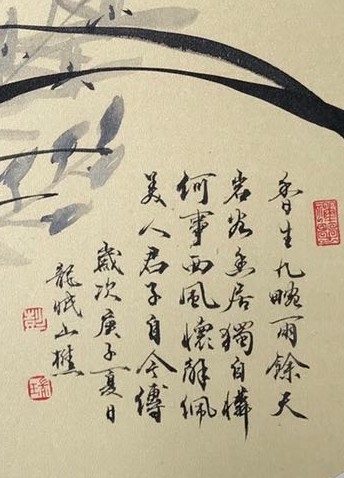 香生九畹雨餘天
岩谷幽居獨自憐
何事西風懷解佩
美人君子自今傳
歲次庚子夏日
龍眠山樵